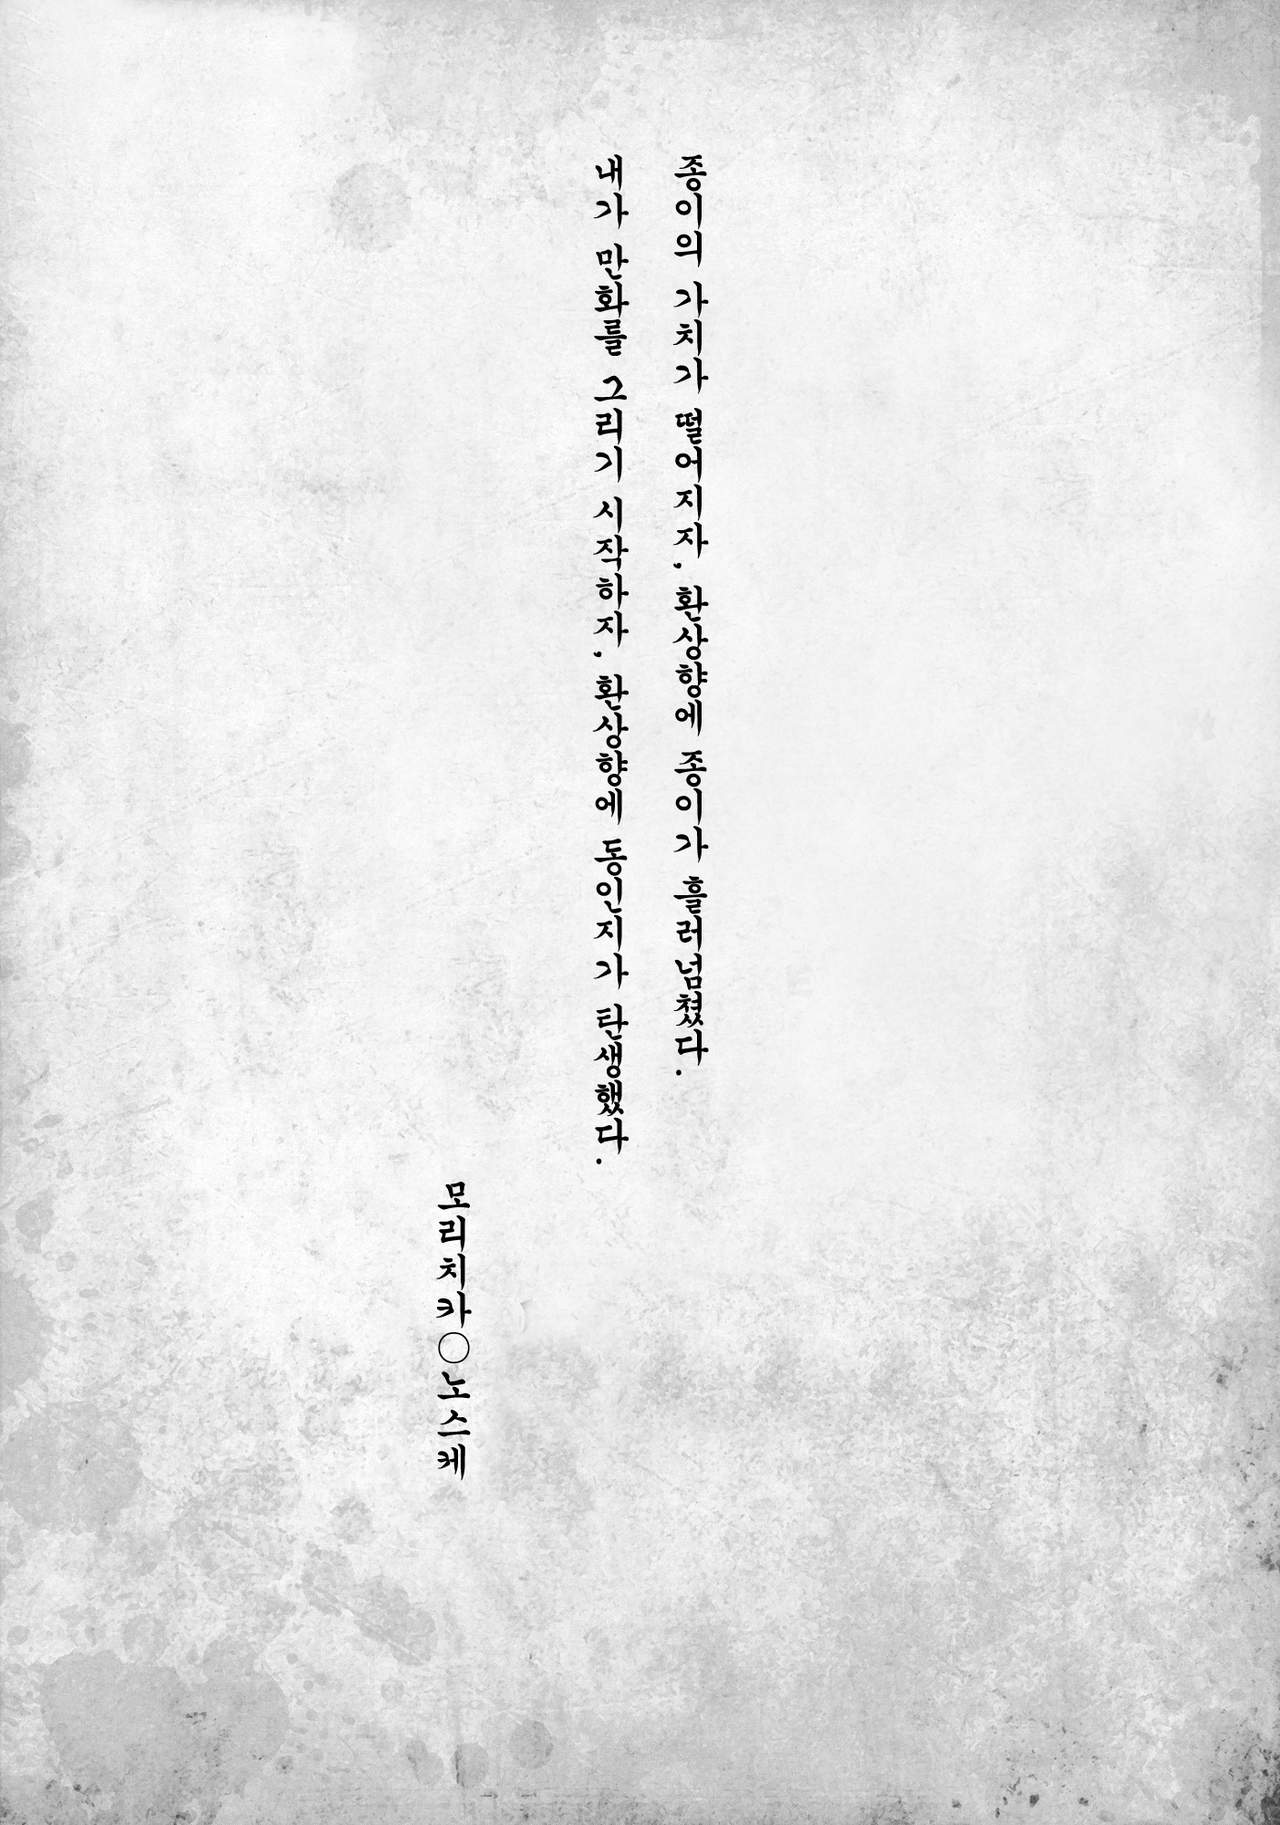 종이의 가치가 떨어지자, 환상향에 종이가 흘러넘쳤다.
내가 만화를 그리기 시작하자, 환상향에 동인지가 탄생했다.
모리치카○노스케